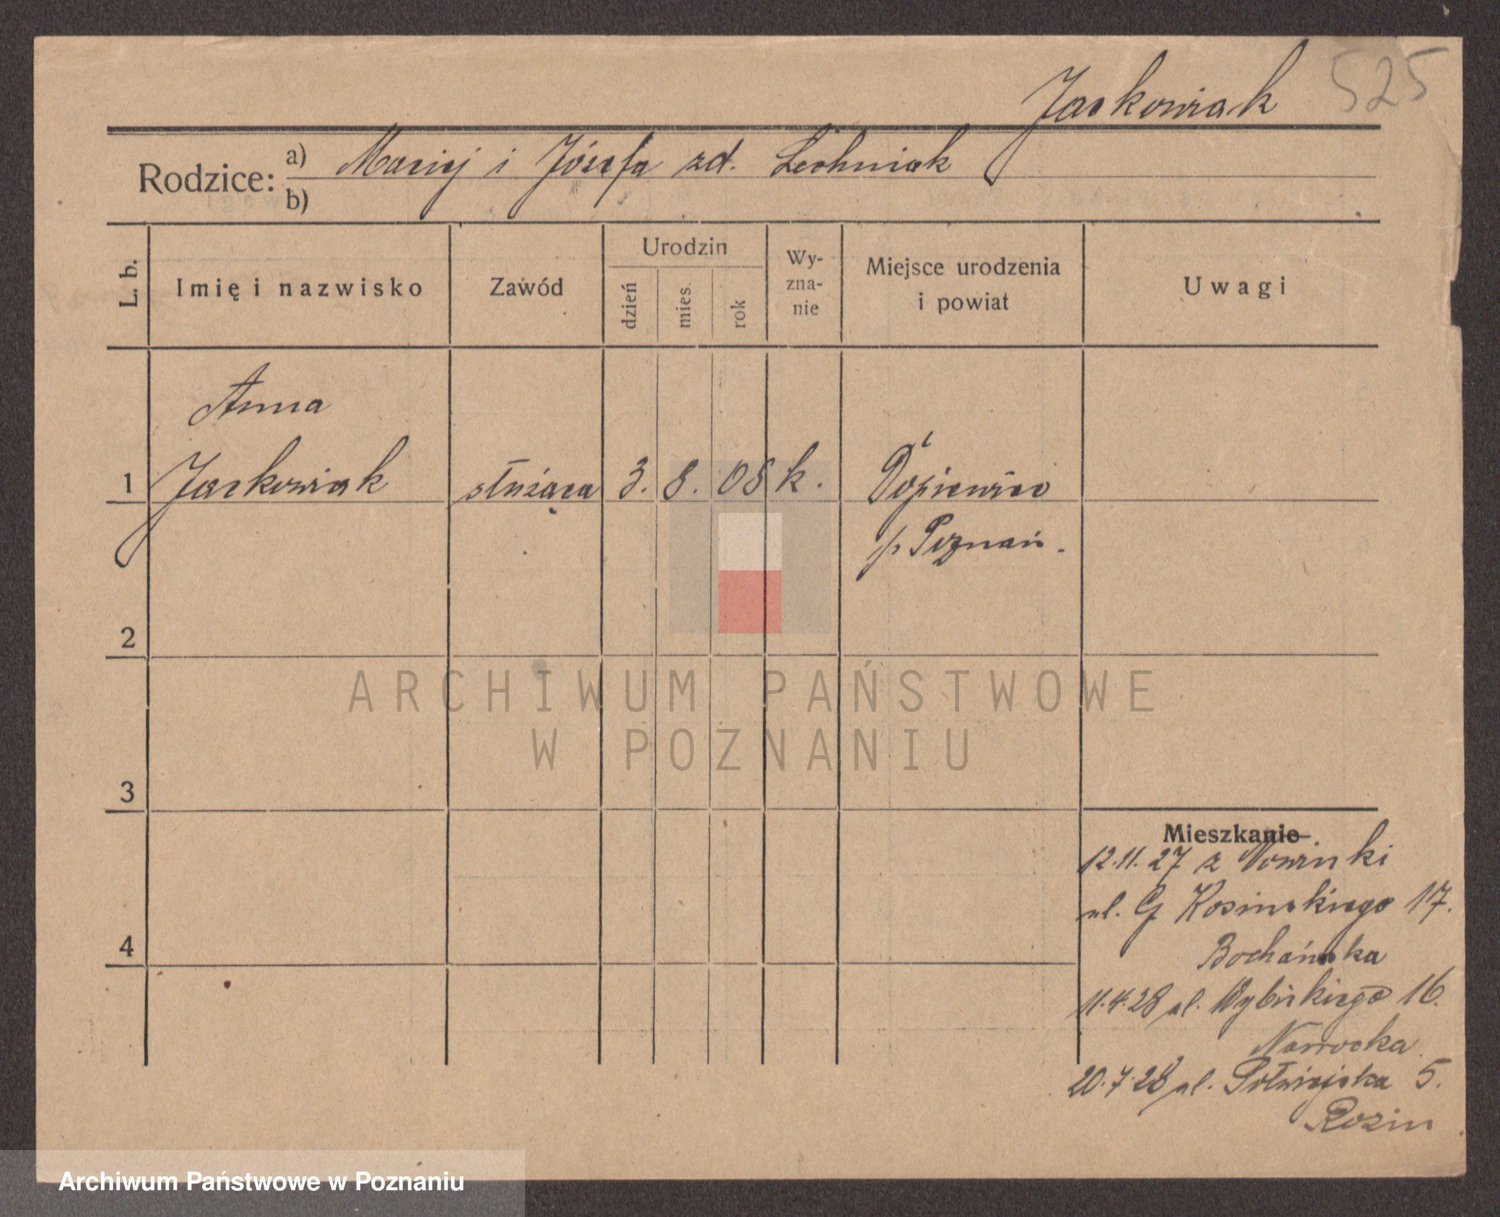 Jackowiak 525
Rodzice: a) Maciej i Józefa zd. Lechniak
b)
L. b.
Imię i nazwisko
Zawód
Urodzin
dzień
mies.
rok
Wy-
zna-
nie
Miejsce urodzenia
i powiat
Uwagi
Anna
1 Jackowiak służąca 3. 8. 08 k. Dopiewiec
p. Poznań.
2
3
4
ARCHIWUM PAŃSTWOWE
W POZNANIU
Mieszkanie
12.11.27 z Nowinki
ul. G Kosińskiego 17.
Bochańska
11.4.28 ul. Wybickiego 16.
Nawrocka
20.7.28 ul. Półwiejska 5.
Rozin
Archiwum Państwowe w Poznaniu